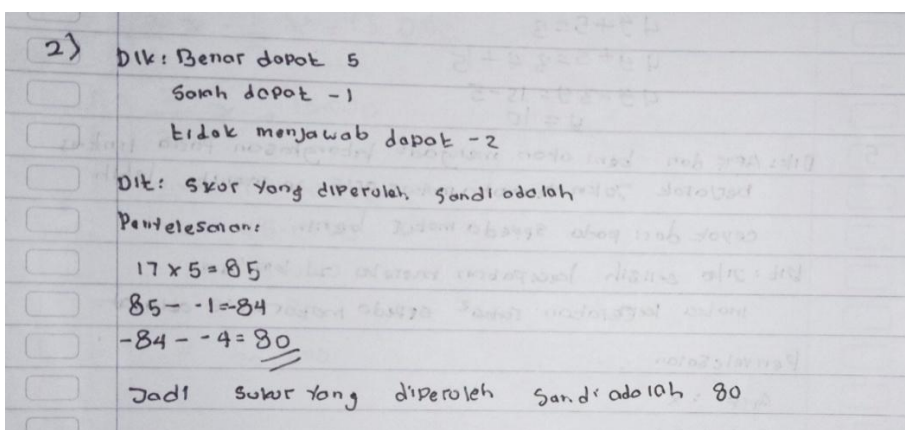 2) Dik: Benar dapat 5
Salah dapat -1
tidak menjawab dapat -2
Dit: Skor yang diperoleh Sandi adalah
Penyelesaian:
17 x 5 = 85
85 - -1 = -84
-84 - -4 = 80
Jadi sukor yang diperoleh Sandi adalah 80